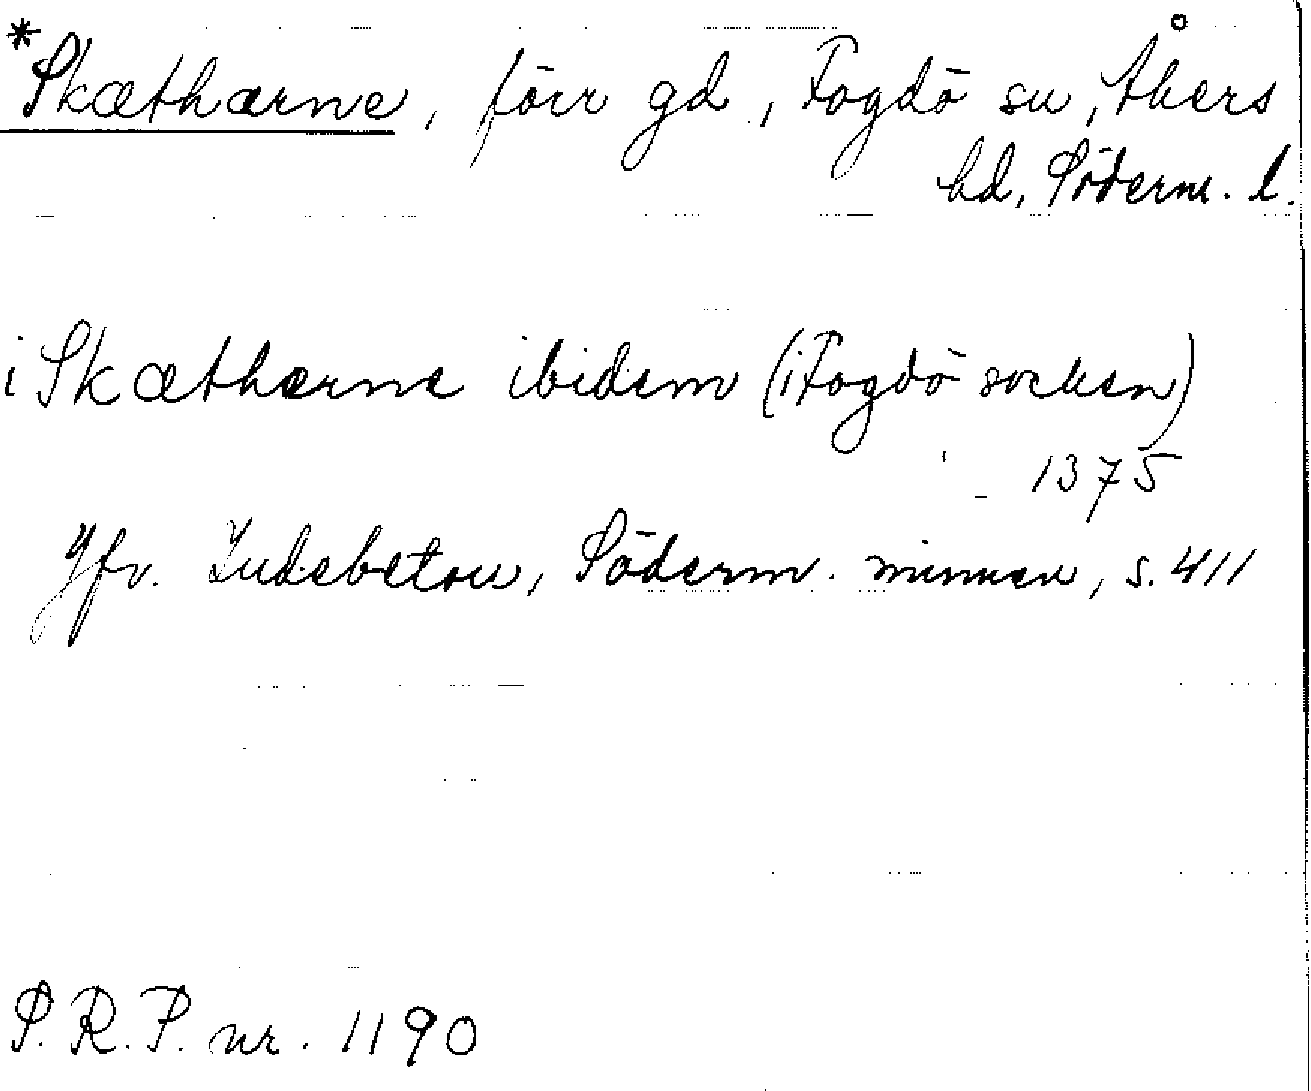 *Skætharne, förr gd, Fogdö sn, Åkers
hd, Söderm. l.
i Skætharne ibidem (i Fogdö socken)
1375
Jfr. Ludebetou, Söderm. minnen, s. 411
S. R. P. nr. 1190